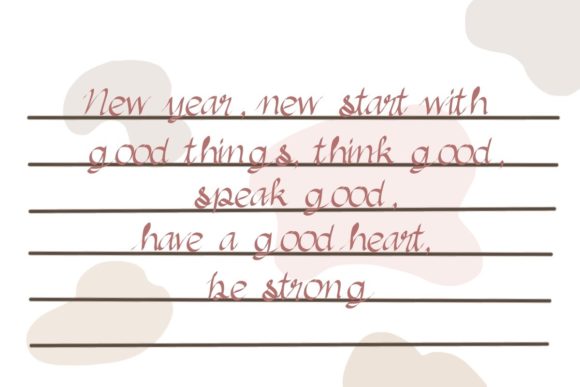 New year, new start with
good things, think good,
speak good,
have a good heart,
be strong